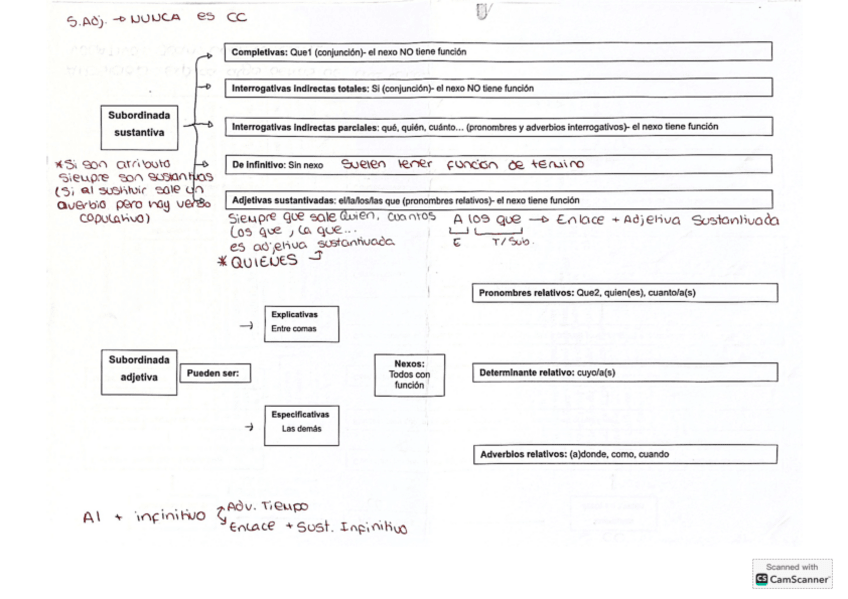 S.Adj. → NUNCA es CC
Completivas: Que1 (conjunción)- el nexo NO tiene función
Interrogativas indirectas totales: Si (conjunción)- el nexo NO tiene función
Subordinada
sustantiva
Interrogativas indirectas parciales: qué, quién, cuánto... (pronombres y adverbios interrogativos)- el nexo tiene función
De infinitivo: Sin nexo
suelen tener función de término
* Si son atributo
siempre son sustantivas
(si al sustituir sale un
averbio pero hay verbo
copulativo)
Adjetivas sustantivadas: el/la/los/las que (pronombres relativos)- el nexo tiene función
Siempre que sale quien, cuantos
los que, la que...
es adjetiva sustantivada
* QUIENES
A los que → Enlace + Adjetiva Sustantivada
E T/Sub.
Pronombres relativos: Que2, quien(es), cuanto/a(s)
→ Explicativas
Entre comas
Subordinada
adjetiva
Pueden ser:
Nexos:
Todos con
función
Determinante relativo: cuyo/a(s)
→ Especificativas
Las demás
Adverbios relativos: (a)donde, como, cuando
Al + infinitivo
Adv. Tiempo
Enlace + Sust. Infinitivo
Scanned with
CS CamScanner